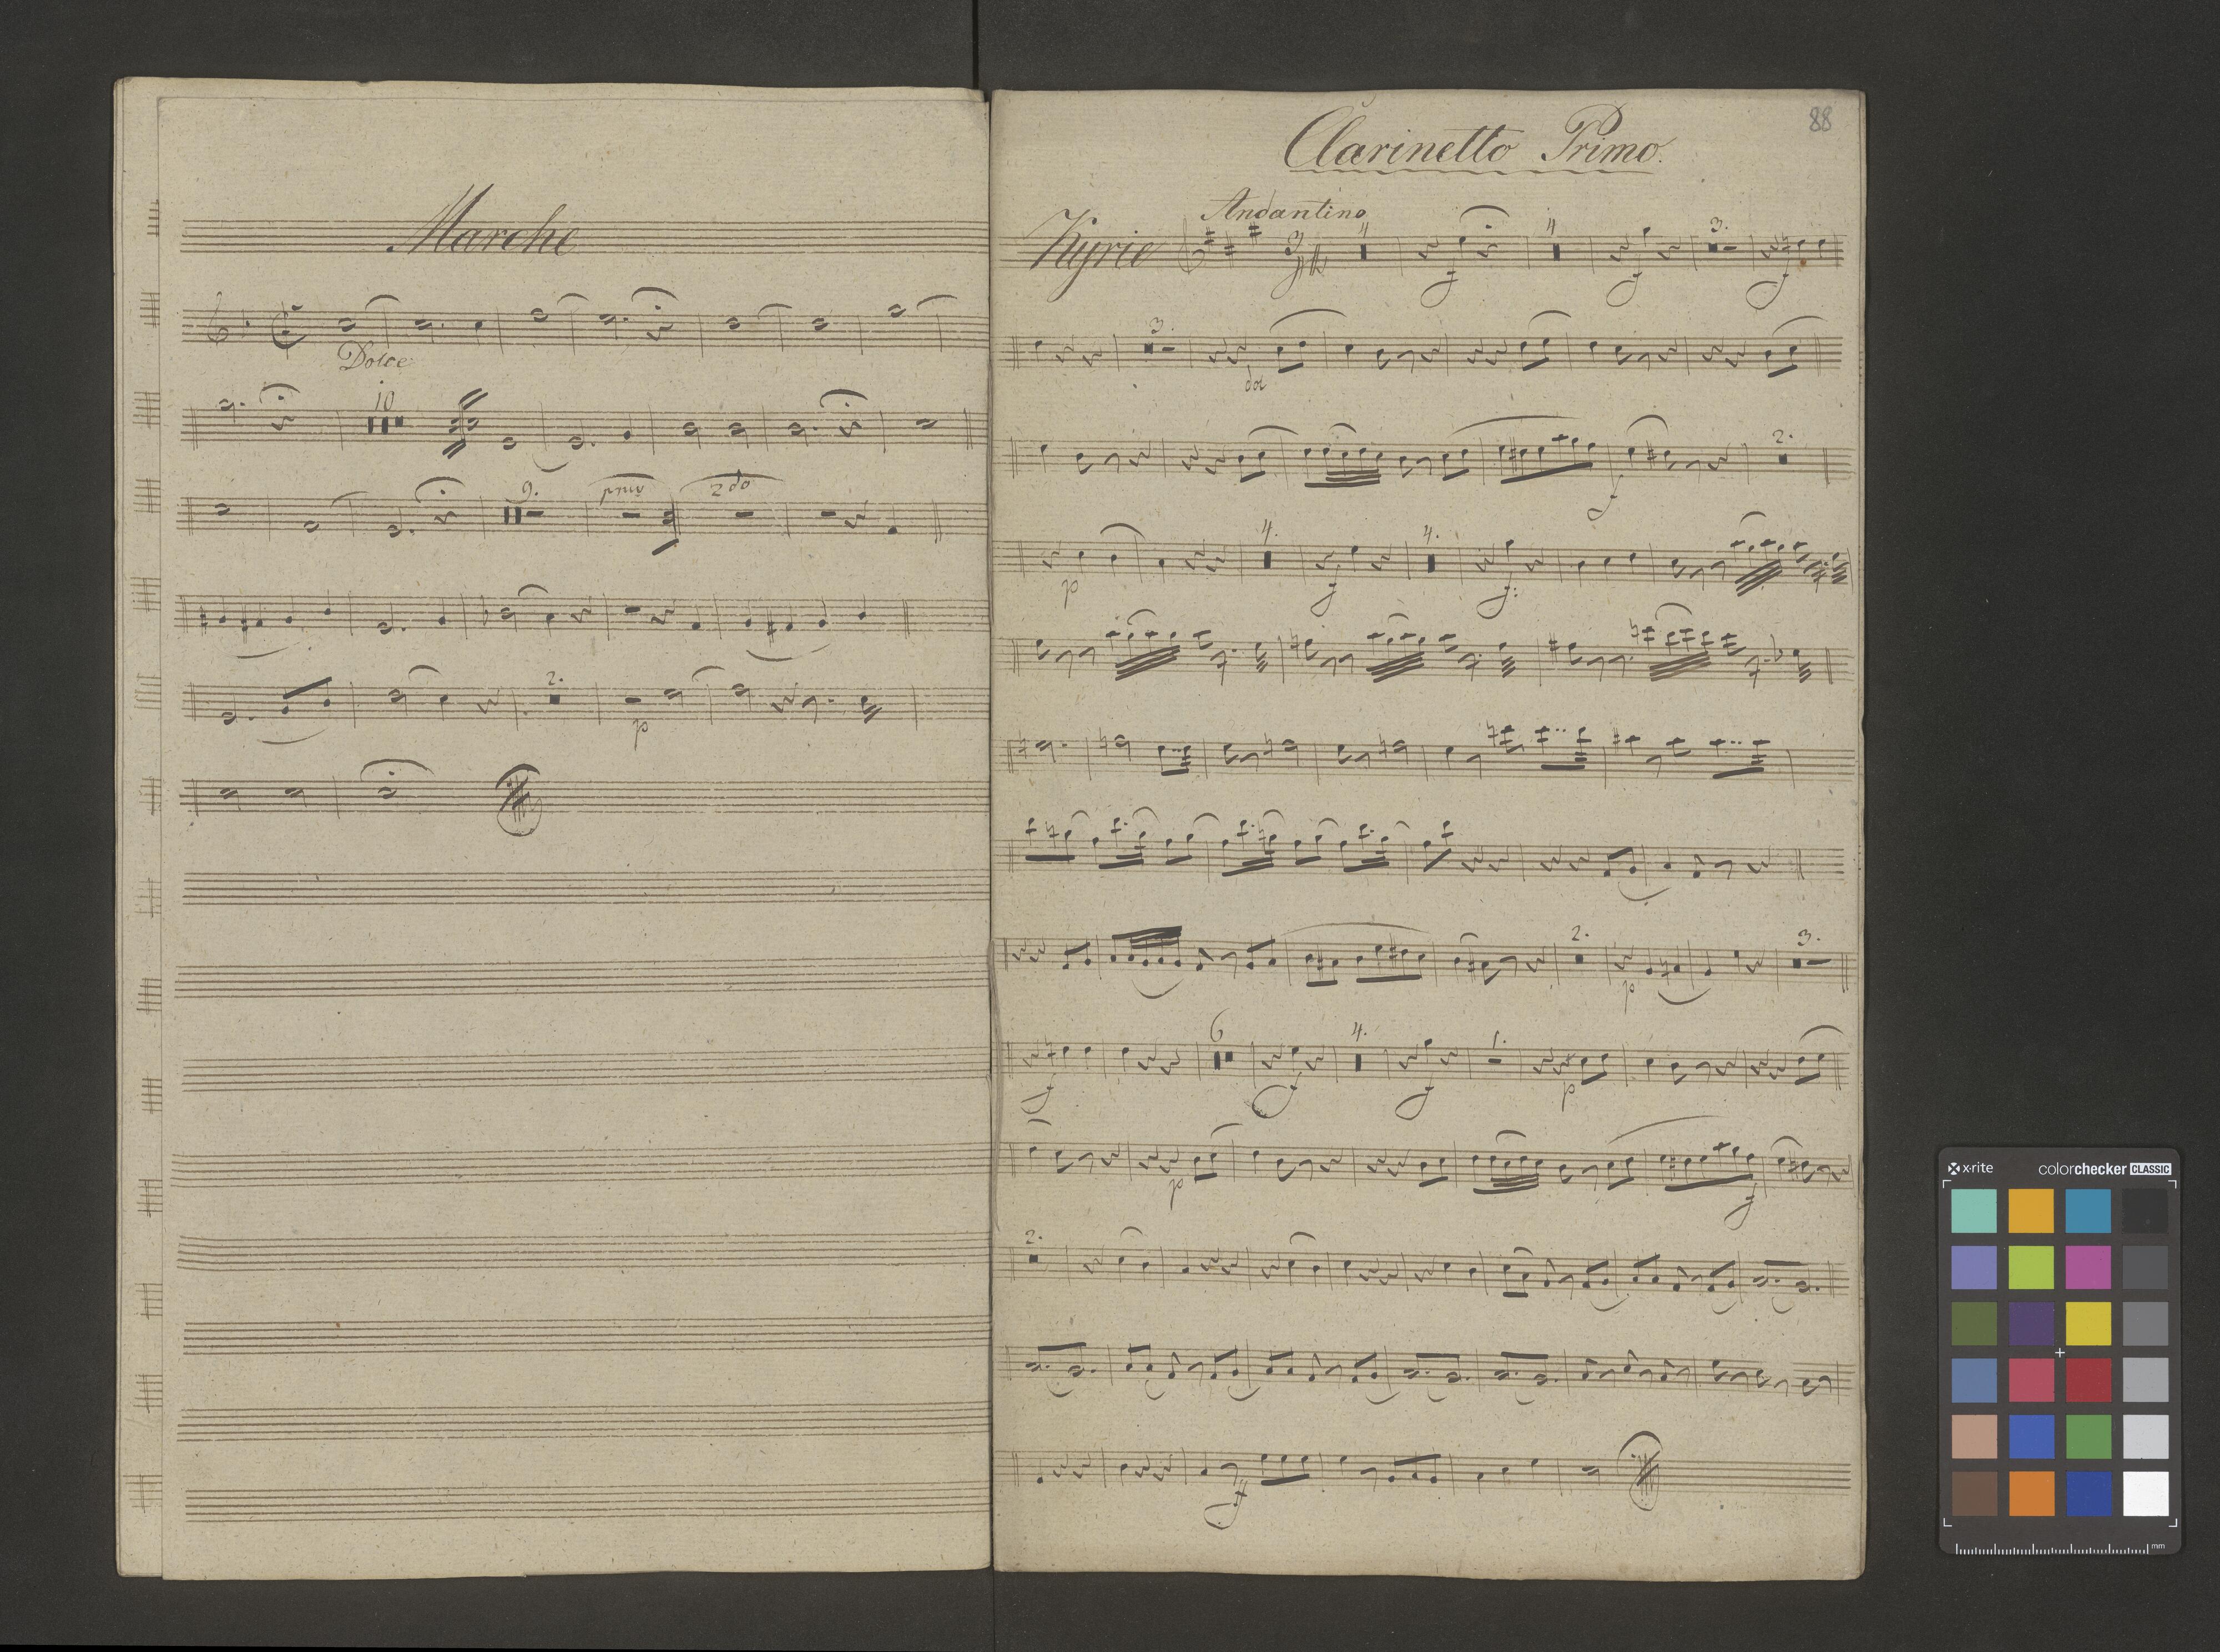 Marche
Dolce
10
9.
primo
2do
2.
p
88
Clarinetto Primo.
Andantino
Kyrie
4
4
3.
f
f
f
3.
dol
2.
f
4.
4.
p
f
f:
2.
3.
p
6
4.
1.
f
f
f
p
p
f
2.
ff
x-rite
colorchecker CLASSIC
mm